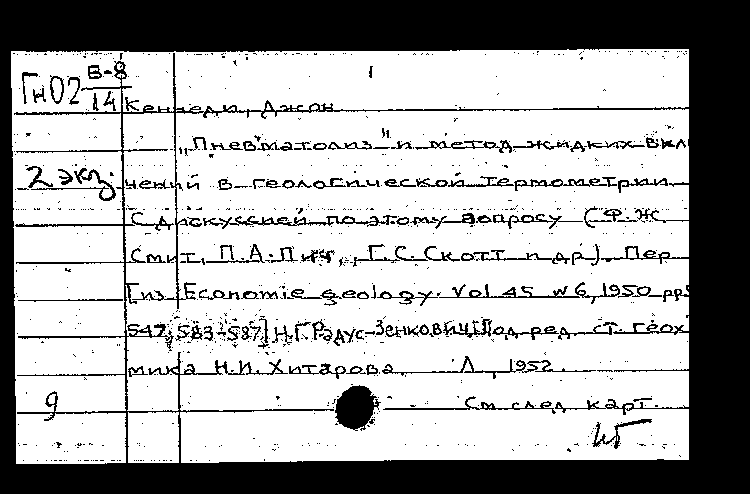 1
Гн02 Б-8
14
Кеннеди, Джон
„Пневматолиз" и метод жидких вклю
2 экз.
чений в геологической термометрии
С дискуссией по этому вопросу (Ф.Ж.
Смит, П.А. , Г.С. Скотт и др). Пер
[из Economic geology. Vol 45 N 6, 1950 pp5
547, 583-587] Н.Г. Радус-Зенкович. Под ред. ст. геох
мика Н.И. Хитарова. Л, 1952.
9
См. след. карт.